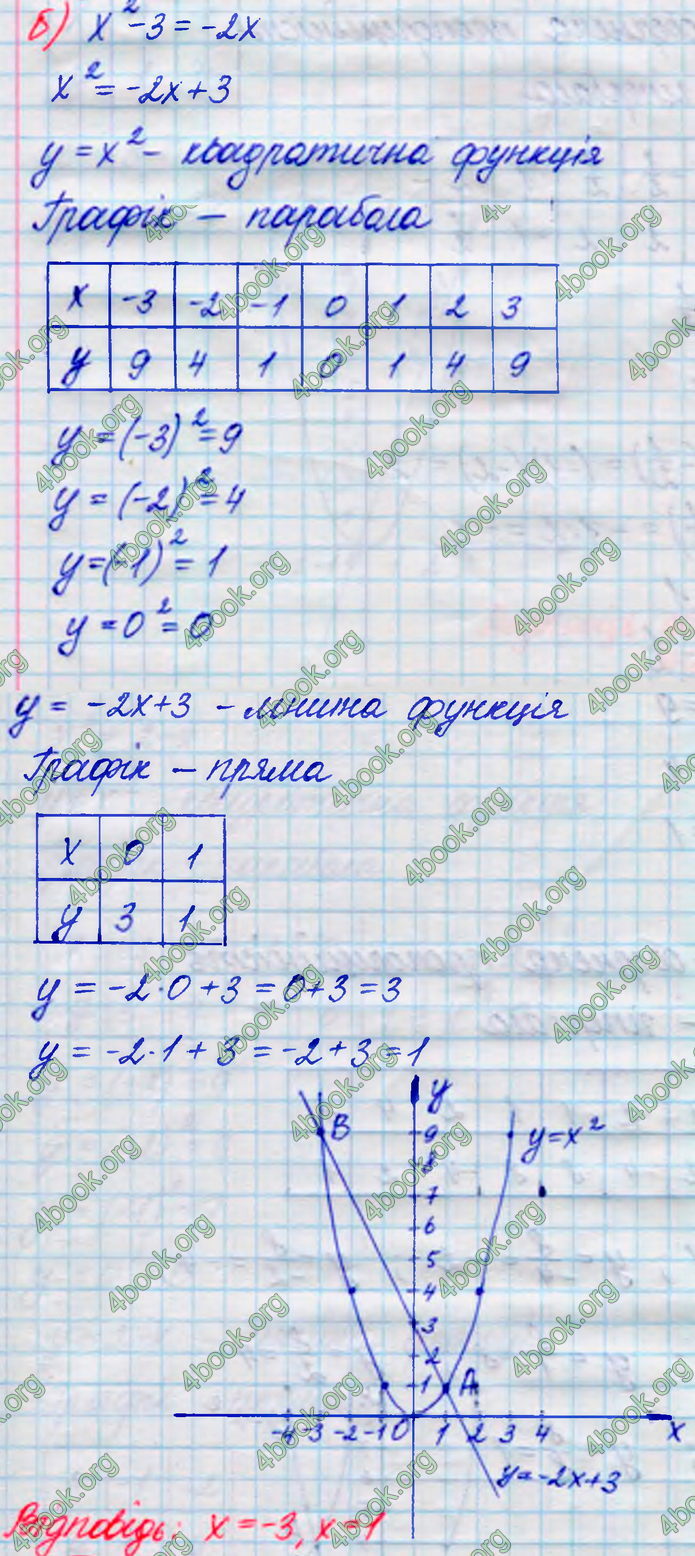 б) x² - 3 = -2x
x² = -2x + 3
y = x² - квадратична функція
Графік — парабола
x -3 -2 -1 0 1 2 3
y 9 4 1 0 1 4 9
y = (-3)² = 9
y = (-2)² = 4
y = (-1)² = 1
y = 0² = 0
y = -2x+3 - лінійна функція
Графік — пряма
x 0 1
y 3 1
y = -2·0 + 3 = 0+3 = 3
y = -2·1 + 3 = -2+3 = 1
y
B 9 y = x²
8
7
6
5
4
3
2
1 A
-4 -3 -2 -1 0 1 2 3 4 x
y = -2x+3
Відповідь: x = -3, x = 1
4book.org